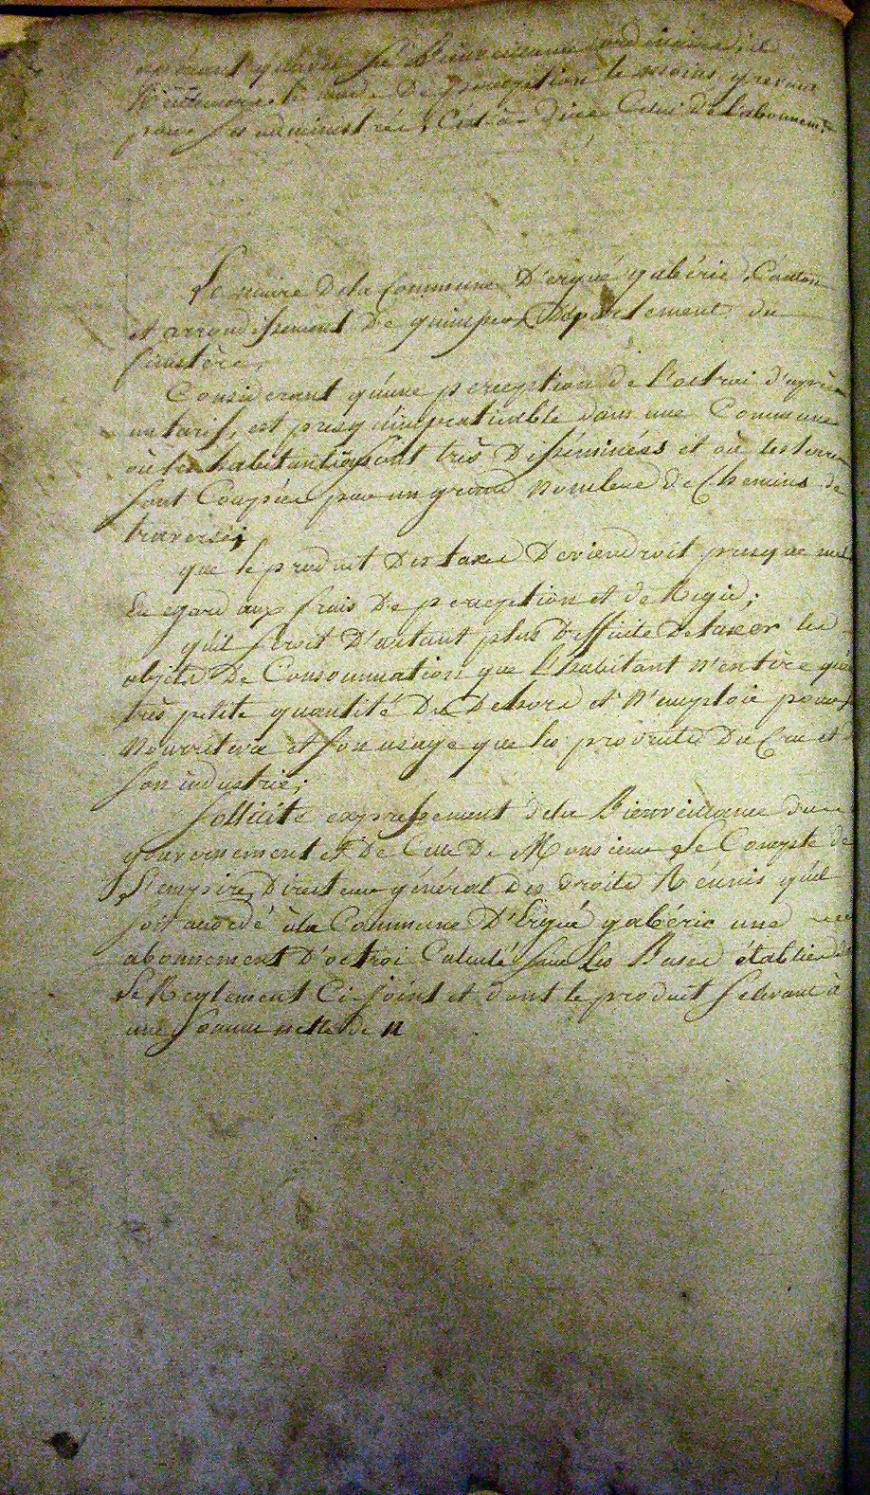 espérant qu'avec sa Bienveillance ordinaire il
le mode De perception le moins grevant
pour ses administrés, C'est à dire Celui De l'abonnemt
Le maire De la Commune D'ergué gabéric, Canton
et arrondissement De quimper, Département du
finistère,
Considerant qu'une perception de l'octroi d'après
un tarif, est presqu'impraticable dans une Commune
où les habitantions sont très Disséminées et où les terres
sont Coupées par un grand nombre de Chemins de
traverse;
que le produit Des taxes Deviendroit presque nul
Eu egard aux frais De perception et de Regie;
qu'il seroit D'autant plus Difficile De taxer les
objets De Consommation que l'habitant n'en tire qu'
très petite quantité Du Dehors et N'emploie pour
Nourriture et son usage que les produits Du Cru et
son industrie;
sollicite expressement de la Bienveillance du
gouvernement et De Celle De Monsieur Le Compte de
L'empire, Directeur général Des droits Réunis qu'il
soit accordé à la Commune D'Ergué gabéric une
abonnement D'octroi Calculé sur les Bases établies
Le Reglement Ci-joint et dont le produit s'elevant à
une somme nette de n